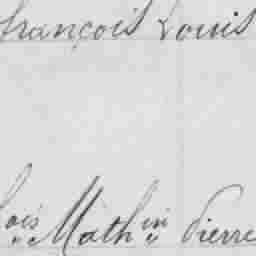 françois Louis
ois Math in Pierre